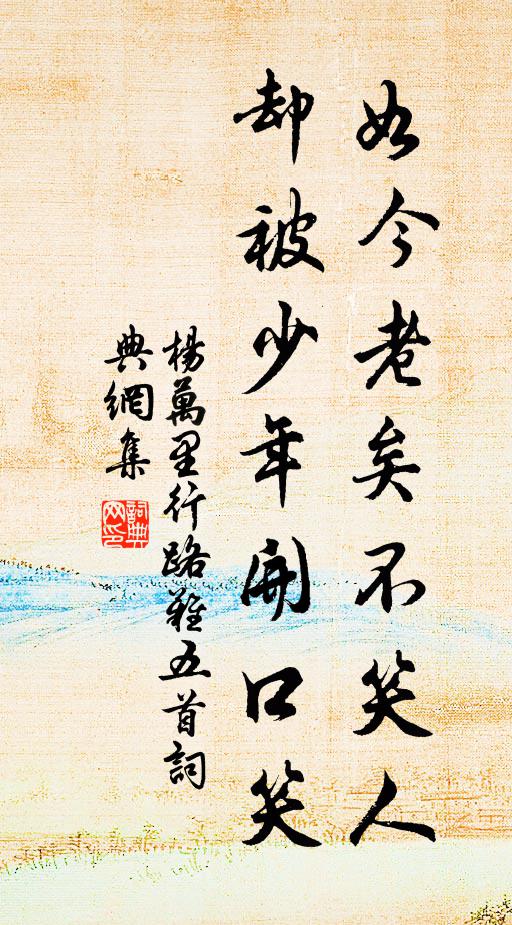 如今老矣不笑人
却被少年開口笑
楊萬里行路難五首詞
典網集
詞典
网印